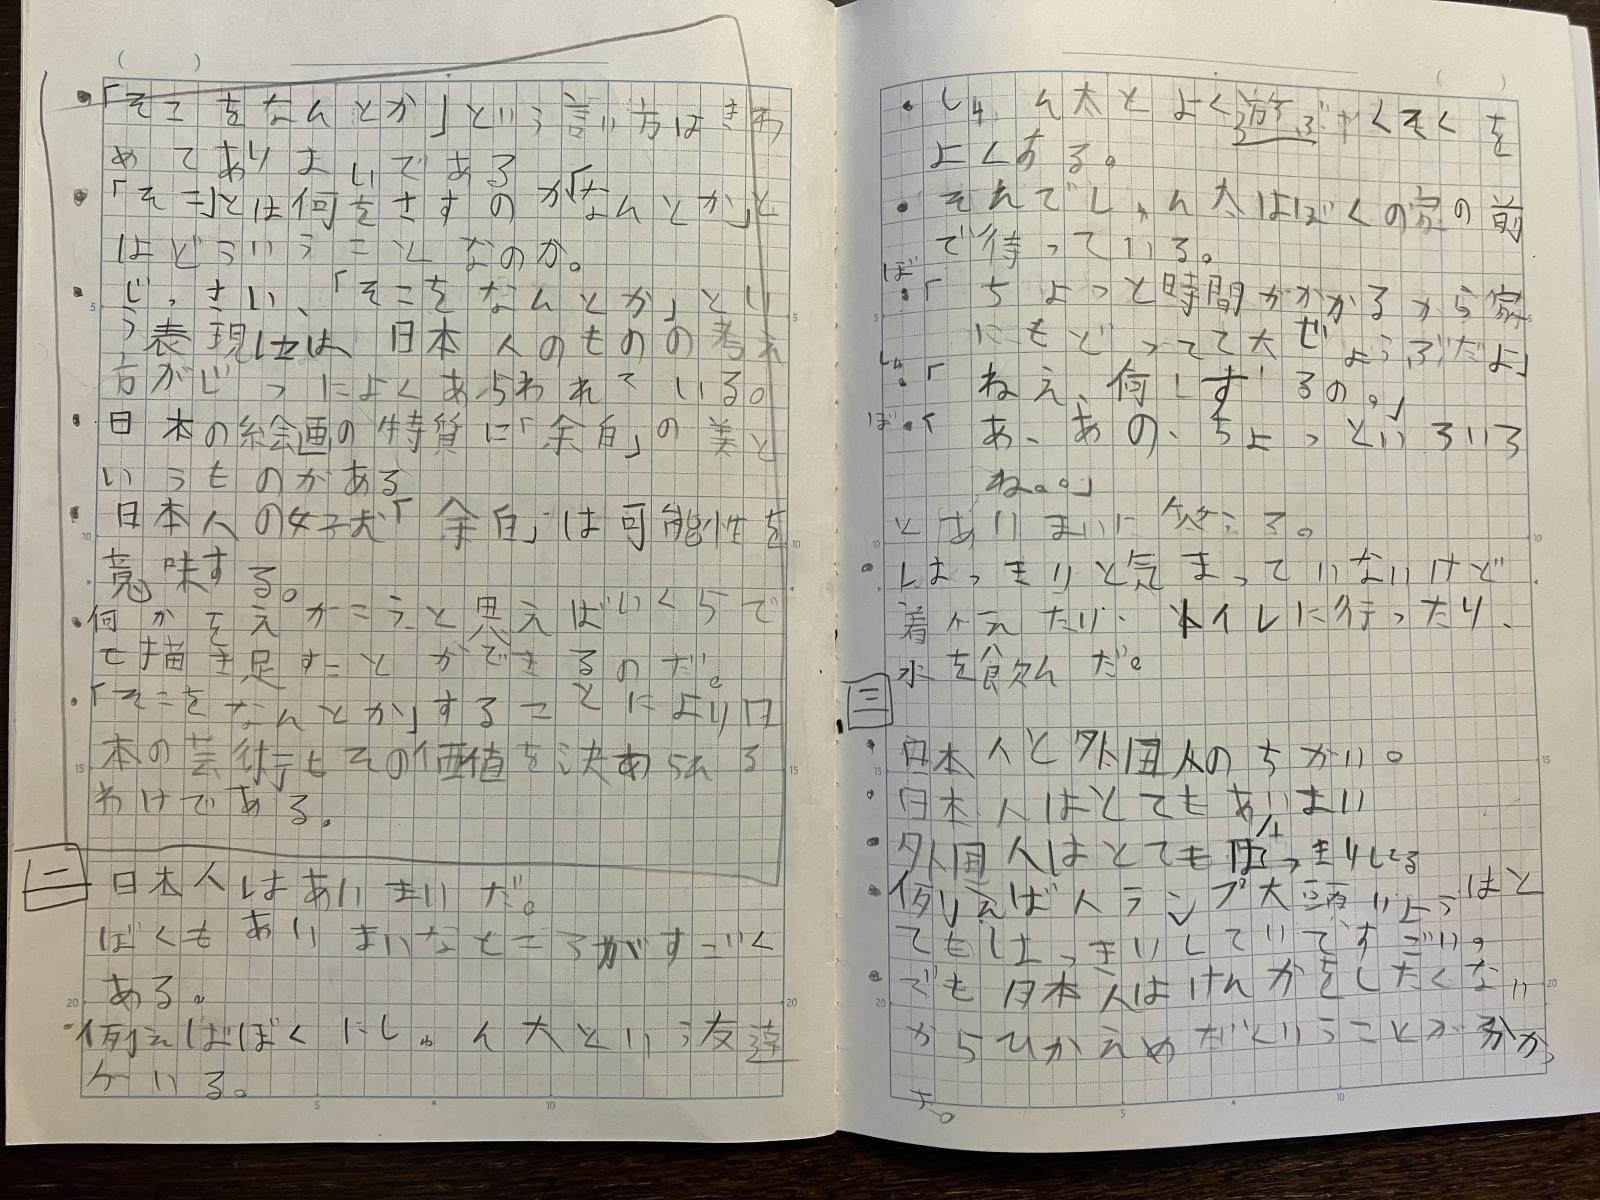 「そこをなんとか」という言い方はきわ
めてあいまいである
「そこ」とは何をさすのか「なんとか」と
はどういうことなのか。
じっさい、「そこをなんとか」とい
う表現には、日本人のものの考え
方がじつによくあらわれている。
日本の絵画の特質に「余白」の美と
いうものがある
日本人の好む「余白」は可能性を
意味する。
何かをえがこうと思えばいくらで
て描き足すことができるのだ。
「そこをなんとか」することにより日
本の芸術もその価値を決められる
わけである。
二
日本人はあいまいだ。
ぼくもあいまいなところがすごく
ある。
例えばぼくにしゅん太という友達
がいる。
しゅん太とよく遊ぶやくそくを
よくする。
それでしゅん太はぼくの家の前
で待っている。
ぼ「ちょっと時間がかかるから家
にもどってて大じょうぶだよ」
しゅ「ねえ、何しするの。」
ぼ「あ、あの、ちょっといろいろ
ね。。」
とあいまいに答える。
はっきりと気まっていないけど
着がえたり、トイレに行ったり、
水を飲んだ。
三
日本人と外国人のちがい。
日本人はとてもあいまい
外国人はとてもはっきりしてる
例えばトランプ大頭りょうはと
てもはっきいしていてすごい。
でも日本人はけんかをしたくない
からひかえめだということが分か
る。